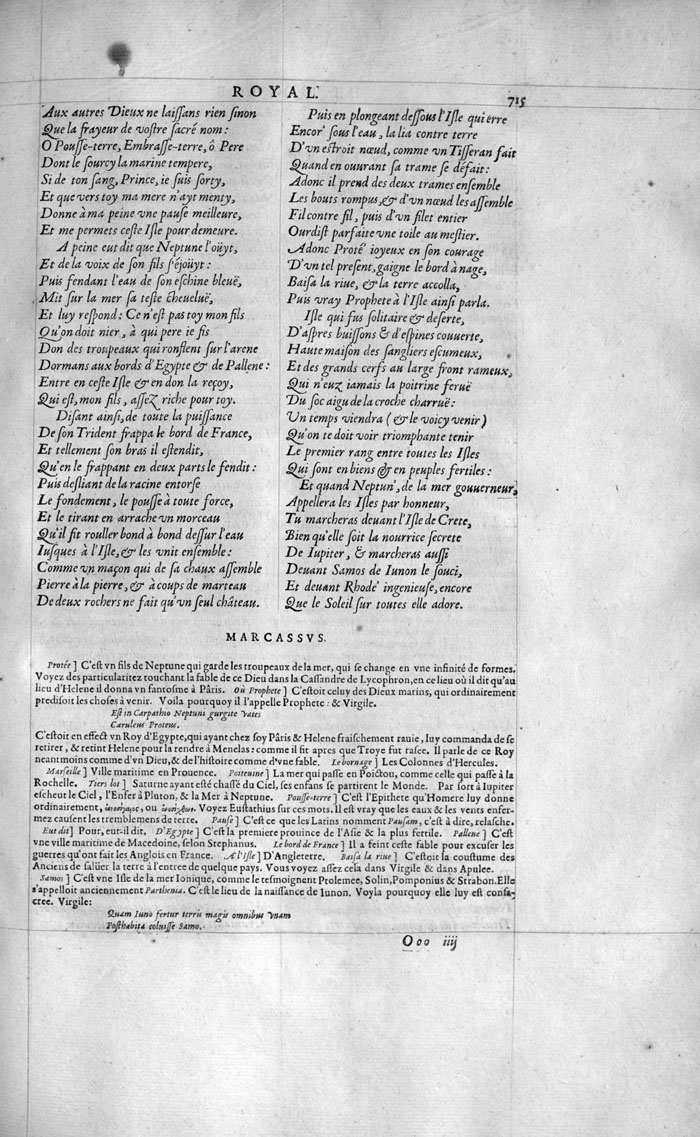 ROYAL.
715
Aux autres Dieux ne laissans rien sinon
Que la frayeur de vostre sacré nom:
O Pousse-terre, Embrasse-terre, ô Pere
Dont le sourcy la marine tempere,
Si de ton sang, Prince, ie suis sorty,
Et que vers toy ma mere n'ayt menty,
Donne à ma peine vne pause meilleure,
Et me permets ceste Isle pour demeure.
A peine eut dit que Neptune l'oüyt,
Et de la voix de son fils s'éjoüyt:
Puis fendant l'eau de son eschine bleuë,
Mit sur la mer sa teste cheueluë,
Et luy respond: Ce n'est pas toy mon fils
Qu'on doit nier, à qui pere ie fis
Don des troupeaux qui ronflent sur l'arene
Dormans aux bords d'Egypte & de Pallene:
Entre en ceste Isle & en don la reçoy,
Qui est, mon fils, assez riche pour toy.
Disant ainsi, de toute la puissance
De son Trident frappa le bord de France,
Et tellement son bras il estendit,
Qu'en le frappant en deux parts le fendit:
Puis desliant de la racine entorse
Le fondement, le pousse à toute force,
Et le tirant en arrache vn morceau
Qu'il fit rouller bond à bond dessur l'eau
Iusques à l'Isle, & les vnit ensemble:
Comme vn maçon qui de sa chaux assemble
Pierre à la pierre, & à coups de marteau
De deux rochers ne fait qu'vn seul château.
Puis en plongeant dessous l'Isle qui erre
Encor' sous l'eau, la lia contre terre
D'vn estroit nœud, comme vn Tisseran fait
Quand en ouurant sa trame se défait:
Adonc il prend des deux trames ensemble
Les bouts rompus, & d'vn nœud les assemble
Fil contre fil, puis d'vn filet entier
Ourdist parfaite vne toile au mestier.
Adonc Proté ioyeux en son courage
D'vn tel present, gaigne le bord à nage,
Baisa la riue, & la terre accolla,
Puis vray Prophete à l'Isle ainsi parla.
Isle qui fus solitaire & deserte,
D'aspres buissons & d'espines couuerte,
Haute maison des sangliers escumeux,
Et des grands cerfs au large front rameux,
Qui n'euz iamais la poitrine feruë
Du soc aigu de la croche charruë:
Un temps viendra (& le voicy venir)
Qu'on te doit voir triomphante tenir
Le premier rang entre toutes les Isles
Qui sont en biens & en peuples fertiles:
Et quand Neptun', de la mer gouuerneur,
Appellera les Isles par honneur,
Tu marcheras deuant l'Isle de Crete,
Bien qu'elle soit la nourrice secrete
De Iupiter, & marcheras aussi
Deuant Samos de Iunon le souci,
Et deuant Rhode' ingenieuse, encore
Que le Soleil sur toutes elle adore.
MARCASSVS.
Protée] C'est vn fils de Neptune qui garde les troupeaux de la mer, qui se change en vne infinité de formes.
Voyez des particularitez touchant la fable de ce Dieu dans la Cassandre de Lycophron, en ce lieu où il dit qu'au
lieu d'Helene il donna vn fantosme à Pâris. Où Prophete] C'estoit celuy des Dieux marins, qui ordinairement
predisoit les choses à venir. Voila pourquoy il l'appelle Prophete: & Virgile.
Est in Carpathio Neptuni gurgite Vates
Caruleus Proteus.
C'estoit en effect vn Roy d'Egypte, qui ayant chez soy Pâris & Helene fraischement rauie, luy commanda de se
retirer, & retint Helene pour la rendre à Menelas: comme il fit apres que Troye fut rasee. Il parle de ce Roy
neantmoins comme d'vn Dieu, & de l'histoire comme d'vne fable. Le bornage] Les Colonnes d'Hercules.
Marseille] Ville maritime en Prouence. Poiteuine] La mer qui passe en Poictou, comme celle qui passe à la
Rochelle. Tiers lot] Saturne ayant esté chassé du Ciel, ses enfans se partirent le Monde. Par sort à Iupiter
escheut le Ciel, l'Enfer à Pluton, & la Mer à Neptune. Pousse-terre] C'est l'Epithete qu'Homere luy donne
ordinairement, ou Voyez Eustathius sur ces mots. Il est vray que les eaux & les vents enfer-
mez causent les tremblemens de terre. Pause] C'est ce que les Latins nomment Pausam, c'est à dire, relasche.
Eut dit] Pour, eut-il dit. D'Egypte] C'est la premiere prouince de l'Asie & la plus fertile. Pallene] C'est
vne ville maritime de Macedoine, selon Stephanus. Le bord de France] Il a feint ceste fable pour excuser les
guerres qu'ont fait les Anglois en France. A l'Isle] D'Angleterre. Baisa la riue] C'estoit la coustume des
Anciens de salüer la terre à l'entree de quelque pays. Vous voyez assez cela dans Virgile & dans Apulee.
Samos] C'est vne Isle de la mer Ionique, comme le tesmoignent Ptolemee, Solin, Pomponius & Strabon. Elle
s'appelloit anciennement Parthenia. C'est le lieu de la naissance de Iunon. Voyla pourquoy elle luy est consa-
cree. Virgile:
Quam Iuno fertur terris magis omnibus Vnam
Posthabita coluisse Samo.
Ooo iiij